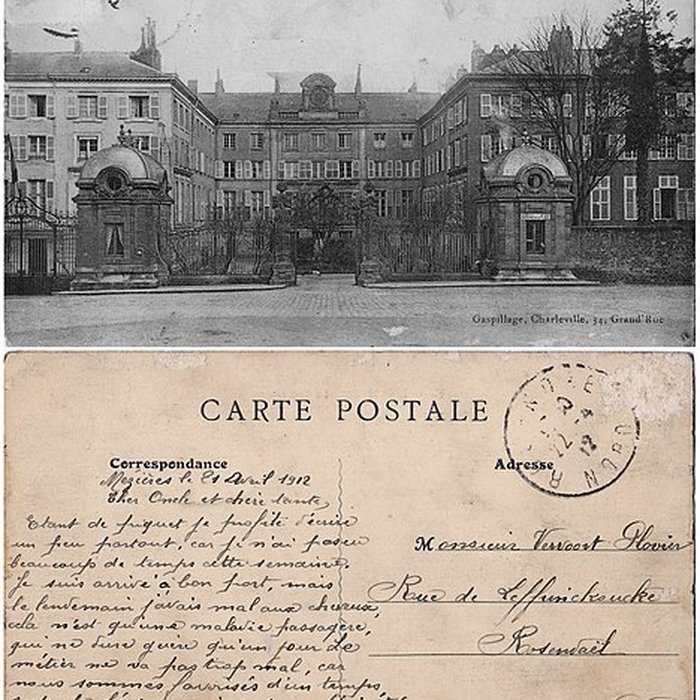 Gaspillage, Charleville, 34, Grand'Rue
CARTE POSTALE
Correspondance
Adresse
22-4
12
Mezières le 21 Avril 1912
Cher Oncle et chère tante,
Etant de piquet je profite d'écrire
un peu partout, car je n'ai pas eu
beaucoup de temps cette semaine.
Je suis arrivé à bon port, mais
le lendemain j'avais mal aux cheveux,
cela n'est qu'une maladie passagère,
qui ne dure guère qu'un jour. Le
métier ne va pas trop mal, car
nous sommes favorisés d'un temps
Monsieur Vervoort Plovier
Rue de Leffrinckoucke
Rosendaël